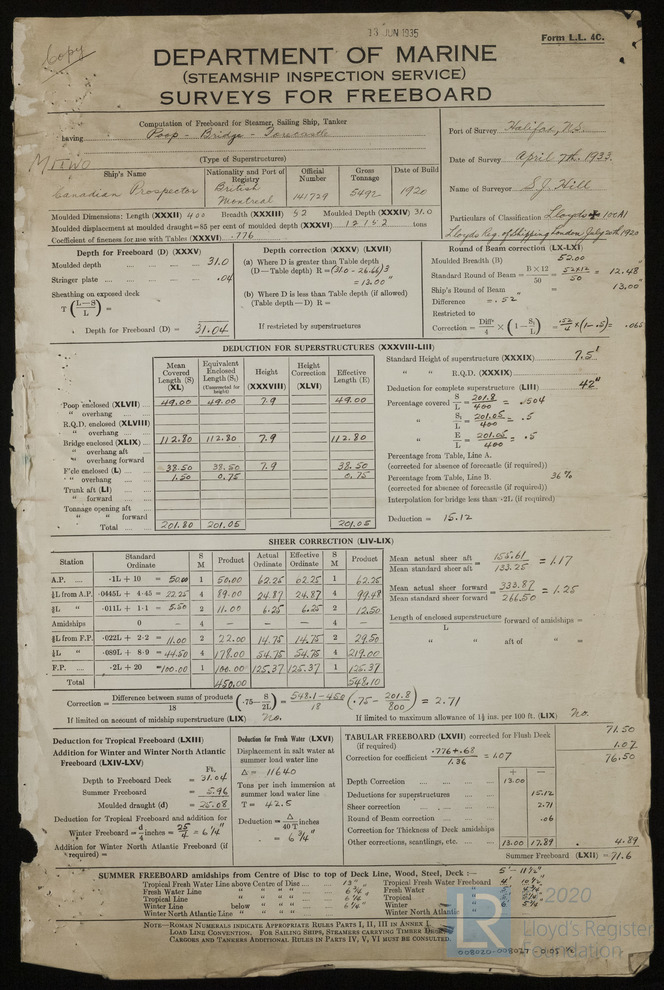 Copy
13 JUN 1935
Form L.L. 4C.
DEPARTMENT OF MARINE
(STEAMSHIP INSPECTION SERVICE)
SURVEYS FOR FREEBOARD
Computation of Freeboard for Steamer, Sailing Ship, Tanker
having Poop - Bridge - Forecastle
(Type of Superstructures)
Port of Survey Halifax, N.S.
Date of Survey April 7th. 1933.
Name of Surveyor S.J. Hill
Particulars of Classification Lloyds ✠ 100A1
Lloyds Reg. of Shipping London July 20th 1920
Ship's Name Nationality and Port of Registry Official Number Gross Tonnage Date of Build
Canadian Prospector British Montreal 141729 5492 1920
Moulded Dimensions: Length (XXXII) 400 Breadth (XXXIII) 52 Moulded Depth (XXXIV) 31.0
Moulded displacement at moulded draught=85 per cent of moulded depth (XXXVI) tons
Coefficient of fineness for use with Tables (XXXVI) .776
Depth for Freeboard (D) (XXXV)
Moulded depth 31.0
Stringer plate .04
Sheathing on exposed deck
T (L-S/L) =
Depth for Freeboard (D) = 31.04
Depth correction (XXXV) (LXVII)
(a) Where D is greater than Table depth
(D—Table depth) R = (31.0 - 26.66) 3
= 13.00"
(b) Where D is less than Table depth (if allowed)
(Table depth—D) R =
If restricted by superstructures
Round of Beam correction (LX-LXI)
Moulded Breadth (B) 52.00
Standard Round of Beam = B×12/50 = 52×12/50 = 12.48
Ship's Round of Beam = 13.00"
Difference = .52
Restricted to
Correction = Diff./4 × (1 - S₁/L) = .52/4 × (1-.5) = .065
DEDUCTION FOR SUPERSTRUCTURES (XXXVIII-LIII)
Mean Covered Length (S) (XL) Equivalent Enclosed Length (S₁) (Uncorrected for height) Height (XXXVIII) Height Correction (XLVI) Effective Length (E)
Poop enclosed (XLVII) 49.00 49.00 7.9 49.00
" overhang
R.Q.D. enclosed (XLVIII)
" overhang
Bridge enclosed (XLIX) 112.80 112.80 7.9 112.80
" overhang aft
" overhang forward
F'cle enclosed (L) 38.50 38.50 7.9 38.50
" overhang 1.50 0.75 0.75
Trunk aft (LI)
" forward
Tonnage opening aft
" " forward
Total 201.80 201.05 201.05
Standard Height of superstructure (XXXIX) 7.5'
" " R.Q.D. (XXXIX)
Deduction for complete superstructure (LIII) 42"
Percentage covered S/L = 201.8/400 = .504
" S₁/L = 201.05/400 = .5
" E/L = 201.05/400 = .5
Percentage from Table, Line A.
(corrected for absence of forecastle (if required))
Percentage from Table, Line B. 36%
(corrected for absence of forecastle (if required))
Interpolation for bridge less than ·2L (if required)
Deduction = 15.12
SHEER CORRECTION (LIV-LIX)
Station Standard Ordinate S M Product Actual Ordinate Effective Ordinate S M Product
A.P. ·1L + 10 = 50.00 1 50.00 62.25 62.25 1 62.25
⅙L from A.P. ·0445L + 4·45 = 22.25 4 89.00 24.87 24.87 4 99.48
⅓L " ·011L + 1·1 = 5.50 2 11.00 6.25 6.25 2 12.50
Amidships 0 – 4 – – – 4 –
⅓L from F.P. ·022L + 2·2 = 11.00 2 22.00 14.75 14.75 2 29.50
⅙L " ·089L + 8·9 = 44.50 4 178.00 54.75 54.75 4 219.00
F.P. ·2L + 20 = 100.00 1 100.00 125.37 125.37 1 125.37
Total 450.00 548.10
Mean actual sheer aft / Mean standard sheer aft = 155.61/133.25 = 1.17
Mean actual sheer forward / Mean standard sheer forward = 333.87/266.50 = 1.25
Length of enclosed superstructure / L forward of amidships =
" " aft of " =
Correction = Difference between sums of products/18 (·75 - S/2L) = 548.1-450/18 (.75 - 201.8/800) = 2.71
If limited on account of midship superstructure (LIX) No.
If limited to maximum allowance of 1½ ins. per 100 ft. (LIX) No.
Deduction for Tropical Freeboard (LXIII)
Addition for Winter and Winter North Atlantic Freeboard (LXIV-LXV)
Ft.
Depth to Freeboard Deck = 31.04
Summer Freeboard = 5.96
Moulded draught (d) = 25.08
Deduction for Tropical Freeboard and addition for
Winter Freeboard = d/4 inches = 25/4 = 6¼"
Addition for Winter North Atlantic Freeboard (if required) =
Deduction for Fresh Water (LXVI)
Displacement in salt water at summer load water line
Δ = 11640
Tons per inch immersion at summer load water line
T = 42.5
Deduction = Δ/40 T inches
= 6¾"
TABULAR FREEBOARD (LXVII) corrected for Flush Deck (if required) 71.50
Correction for coefficient .776+.68/1.36 = 1.07 1.07
76.50
+ –
Depth Correction 13.00
Deductions for superstructures 15.12
Sheer correction 2.71
Round of Beam correction .06
Correction for Thickness of Deck amidships
Other corrections, scantlings, etc. 13.00 17.89 4.89
Summer Freeboard (LXII) = 71.6
SUMMER FREEBOARD amidships from Centre of Disc to top of Deck Line, Wood, Steel, Deck :— 5' - 11½"
Tropical Fresh Water Line above Centre of Disc 13" Tropical Fresh Water Freeboard 4' 10½"
Fresh Water Line " " 6¾" Fresh Water "
Tropical Line " " 6¼" Tropical "
Winter Line below " " 6¼" Winter "
Winter North Atlantic Line " " Winter North Atlantic "
NOTE—ROMAN NUMERALS INDICATE APPROPRIATE RULES PARTS I, II, III IN ANNEX I,
LOAD LINE CONVENTION. FOR SAILING SHIPS, STEAMERS CARRYING TIMBER DECK
CARGOES AND TANKERS ADDITIONAL RULES IN PARTS IV, V, VI MUST BE CONSULTED.
LR
© 2020
Lloyd's Register
Foundation